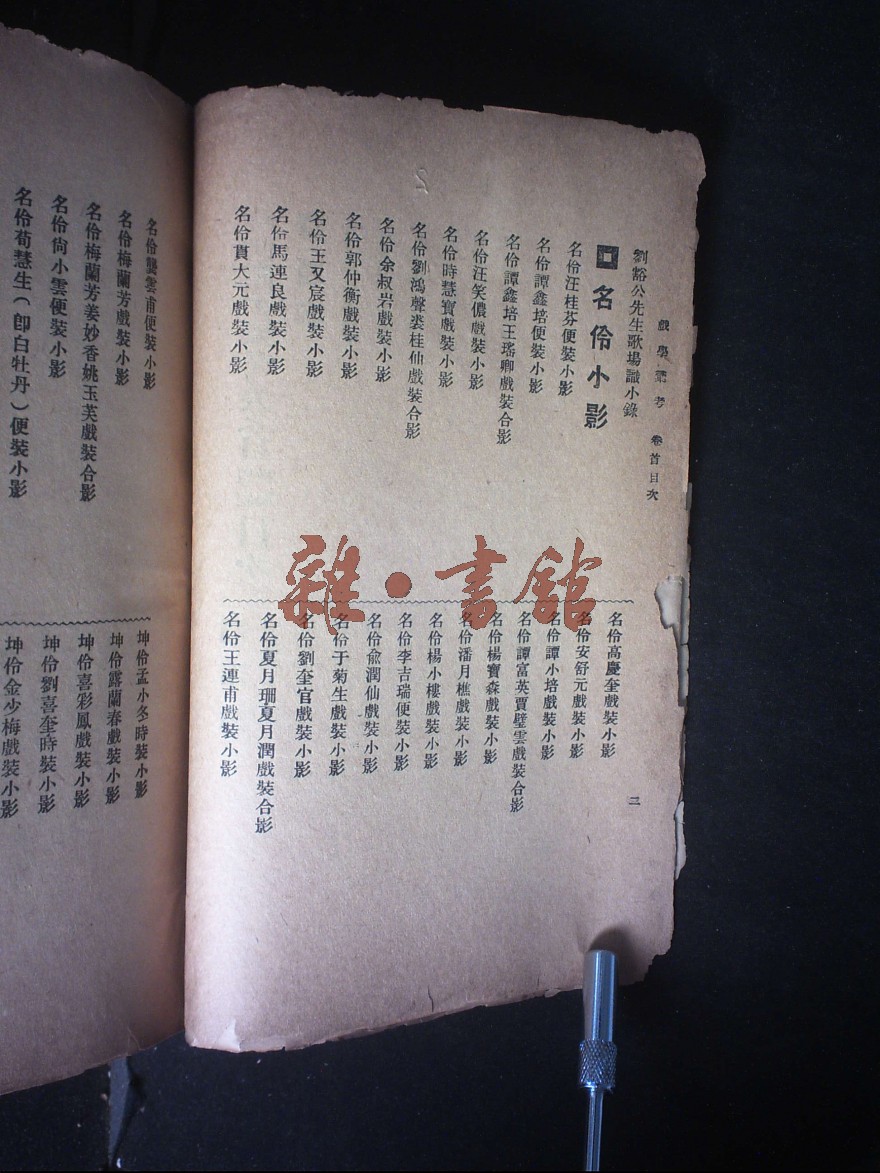 戲學彙考　卷首目次
二
劉豁公先生歌場識小錄
名伶小影
名伶汪桂芬便裝小影
名伶譚鑫培便裝小影
名伶譚鑫培王瑤卿戲裝合影
名伶汪笑儂戲裝小影
名伶時慧寶戲裝小影
名伶劉鴻聲裘桂仙戲裝合影
名伶余叔岩戲裝小影
名伶郭仲衡戲裝小影
名伶王又宸戲裝小影
名伶馬連良戲裝小影
名伶貫大元戲裝小影
名伶高慶奎戲裝小影
名伶安舒元戲裝小影
名伶譚小培戲裝小影
名伶譚富英賈璧雲戲裝合影
名伶楊寶森戲裝小影
名伶潘月樵戲裝小影
名伶楊小樓戲裝小影
名伶李吉瑞便裝小影
名伶俞潤仙戲裝小影
名伶于菊生戲裝小影
名伶劉奎官戲裝小影
名伶夏月珊夏月潤戲裝合影
名伶王連甫戲裝小影
名伶龔雲甫便裝小影
名伶梅蘭芳戲裝小影
名伶梅蘭芳姜妙香姚玉芙戲裝合影
名伶尙小雲便裝小影
名伶荀慧生（卽白牡丹）便裝小影
坤伶孟小冬時裝小影
坤伶露蘭春戲裝小影
坤伶喜彩鳳戲裝小影
坤伶劉喜奎時裝小影
坤伶金少梅戲裝小影
雜·書館
2